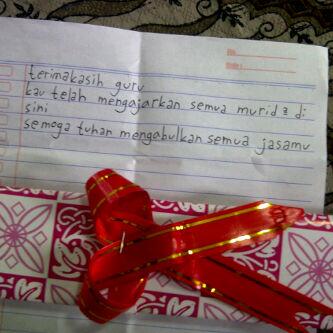 terimakasih guru
kau telah mengajarkan semua murid2 di
sini
semoga tuhan mengabulkan semua jasamu